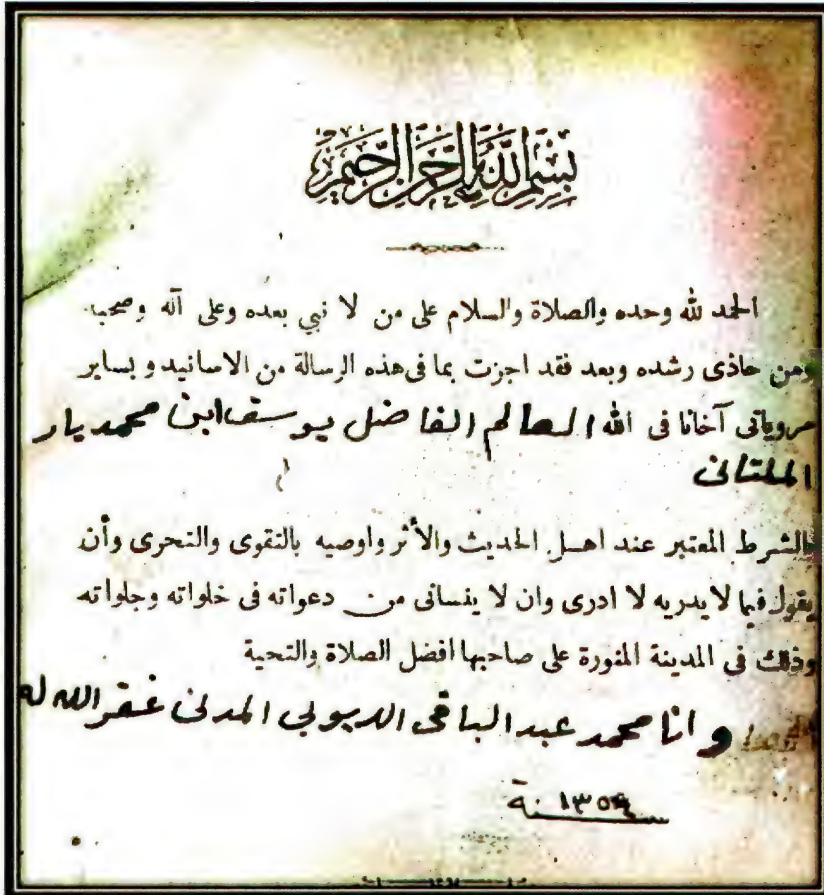 بسم الله الرحمن الرحيم
الحمد لله وحده والصلاة والسلام على من لا نبي بعده وعلى آله وصحبه
ومن حاذى رشده وبعد فقد اجزت بما فى هذه الرسالة من الاسانيد وبساير
مروياتى آخانا فى الله العالم الفاضل يوسف ابن محمد يار
الملتانى
بالشرط المعتبر عند اهل الحديث والأثر واوصيه بالتقوى والتحرى وأن
يقول فيما لا يدريه لا ادرى وان لا ينسانى من دعواته فى خلواته وجلواته
وذلك فى المدينة المنورة على صاحبها افضل الصلاة والتحية
وانا محمد عبد الباقى المدنى غفر الله له
سنة